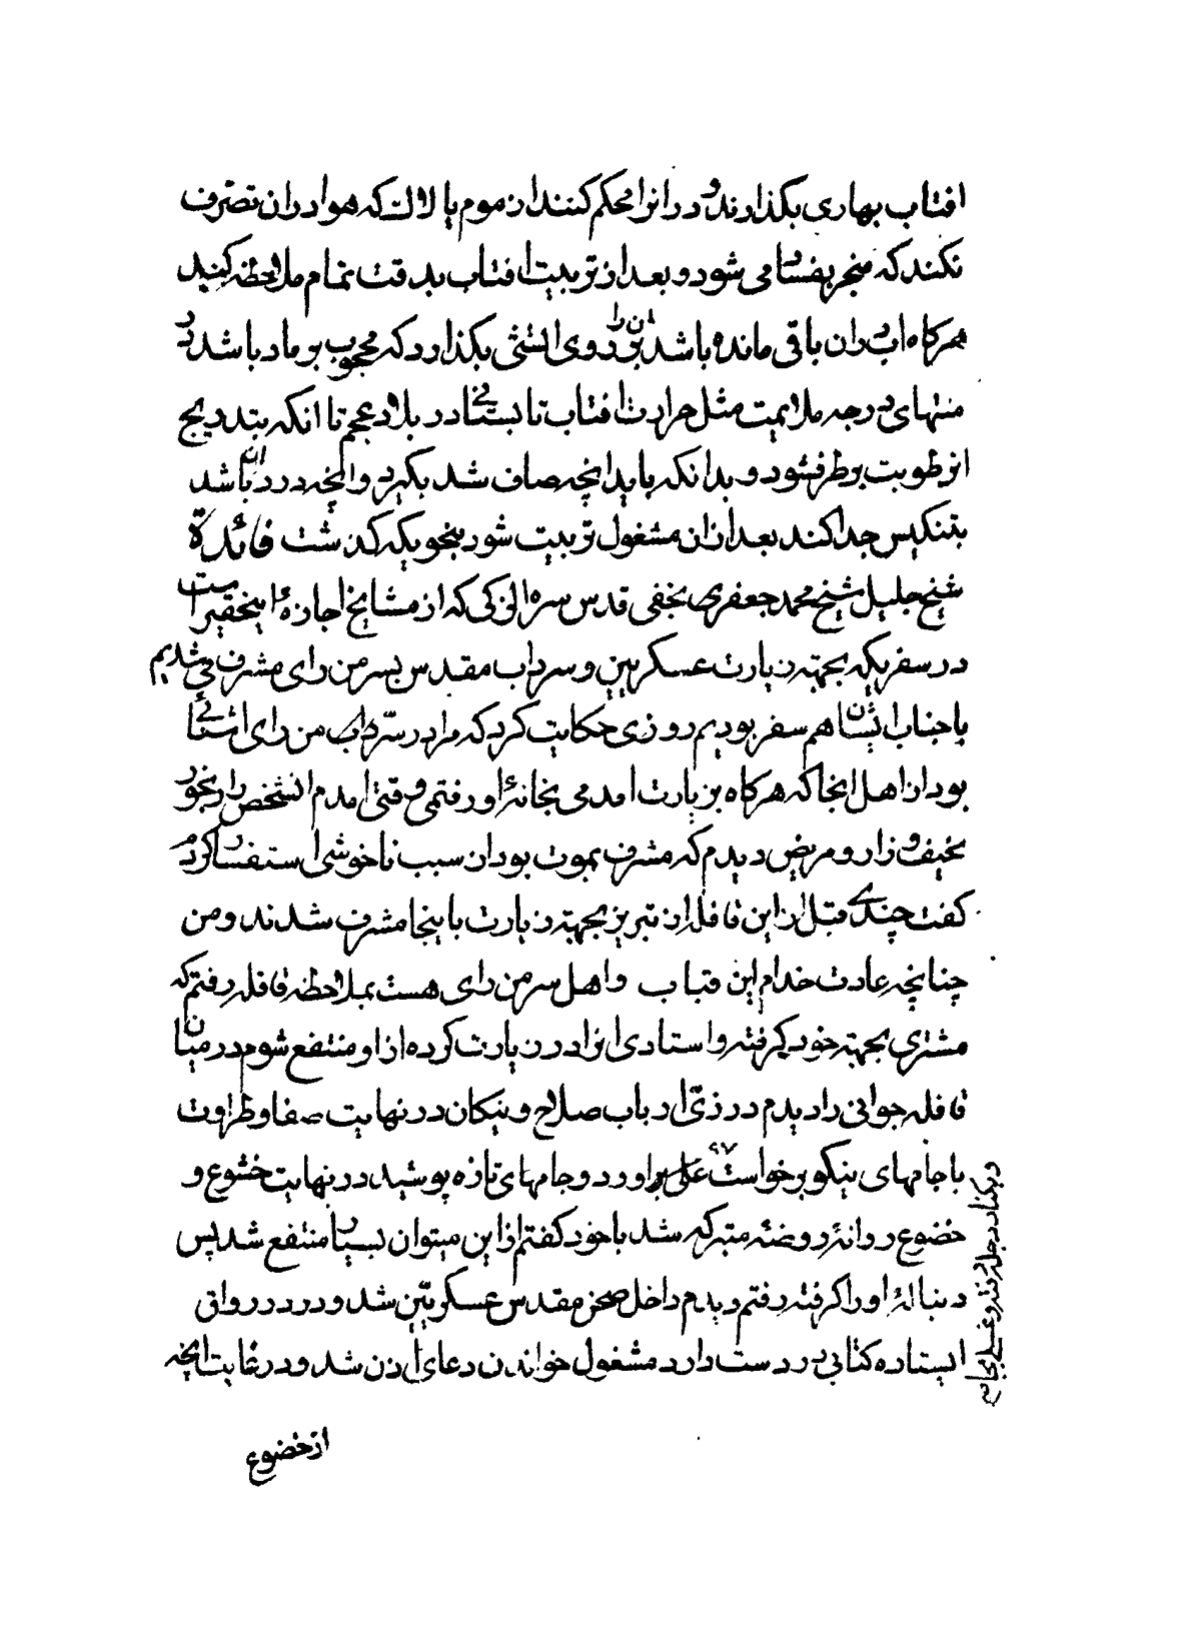 افتاب بهاری بکذارند و درانرا محکم کنند از موم یا لاک که هوا دران تصرف
نکند که منجر بفساد می شود و بعد از تربیت افتاب بدقت تمام ملاحظه کنید
هرکاه ابی دران باقی مانده باشد ان را بر روی اتشی بکذارد که محجوب برماد باشد در
منتهای درجه ملایمت مثل حرارت افتاب تابستانی در بلاد عجم تا انکه بتدریج
ان رطوبت برطرف شود و بدانکه باید انچه صاف شد بکیرد و انچه درد ان باشد
بتنکیس جدا کند بعد ازان مشغول تربیت شود بنحویکه کذشت فائدة
شیخ جلیل شیخ محمد جعفری نجفی قدس سره الزکی که از مشایخ اجازهٔ اینحقیر است
در سفریکه بجهته زیارت عسکریین و سرداب مقدس بسر من رای مشرف می شدیم
با جناب ایشان هم سفر بودیم روزی حکایت کرد که مرا در سرداب من رای اشنائی
بود از اهل انجا که هرکاه بزیارت امدمی بخانهٔ او رفتمی وقتی امدم انشخص را رنجور
نحیف و زار و مریض دیدم که مشرف بموت بود ان سبب ناخوشی استفسار کردم
کفت چندی قبل ازاین قافله از تبریز بجهته زیارت باینجا مشرف شدند و من
چنانچه عادت خدام این قباب واهل سرمن رای هست بملاحظه قافله رفتم که
مشتری بجهته خود کرفته واستادی انرا در زیارت کرده از او منتفع شوم در میان
قافله جوانی را دیدم در زی ارباب صلاح و نیکان در نهایت صفا و طراوت
با جامهای نیکو برخواست براورد و جامهای تازه پوشید در نهایت خشوع و
خضوع روانهٔ روضهٔ متبرکه شد با خود کفتم ازاین میتوان بسیار منتفع شد پس
دنبالهٔ اورا کرفته رفتم دیدم داخل صحن مقدس عسکریین شد و در در رواق
ایستاده کتابی در دست دارد مشغول خواندن دعای اذن شد و در غایت انچه
از خضوع
و بکنار دجله رفته و غسلی بجای